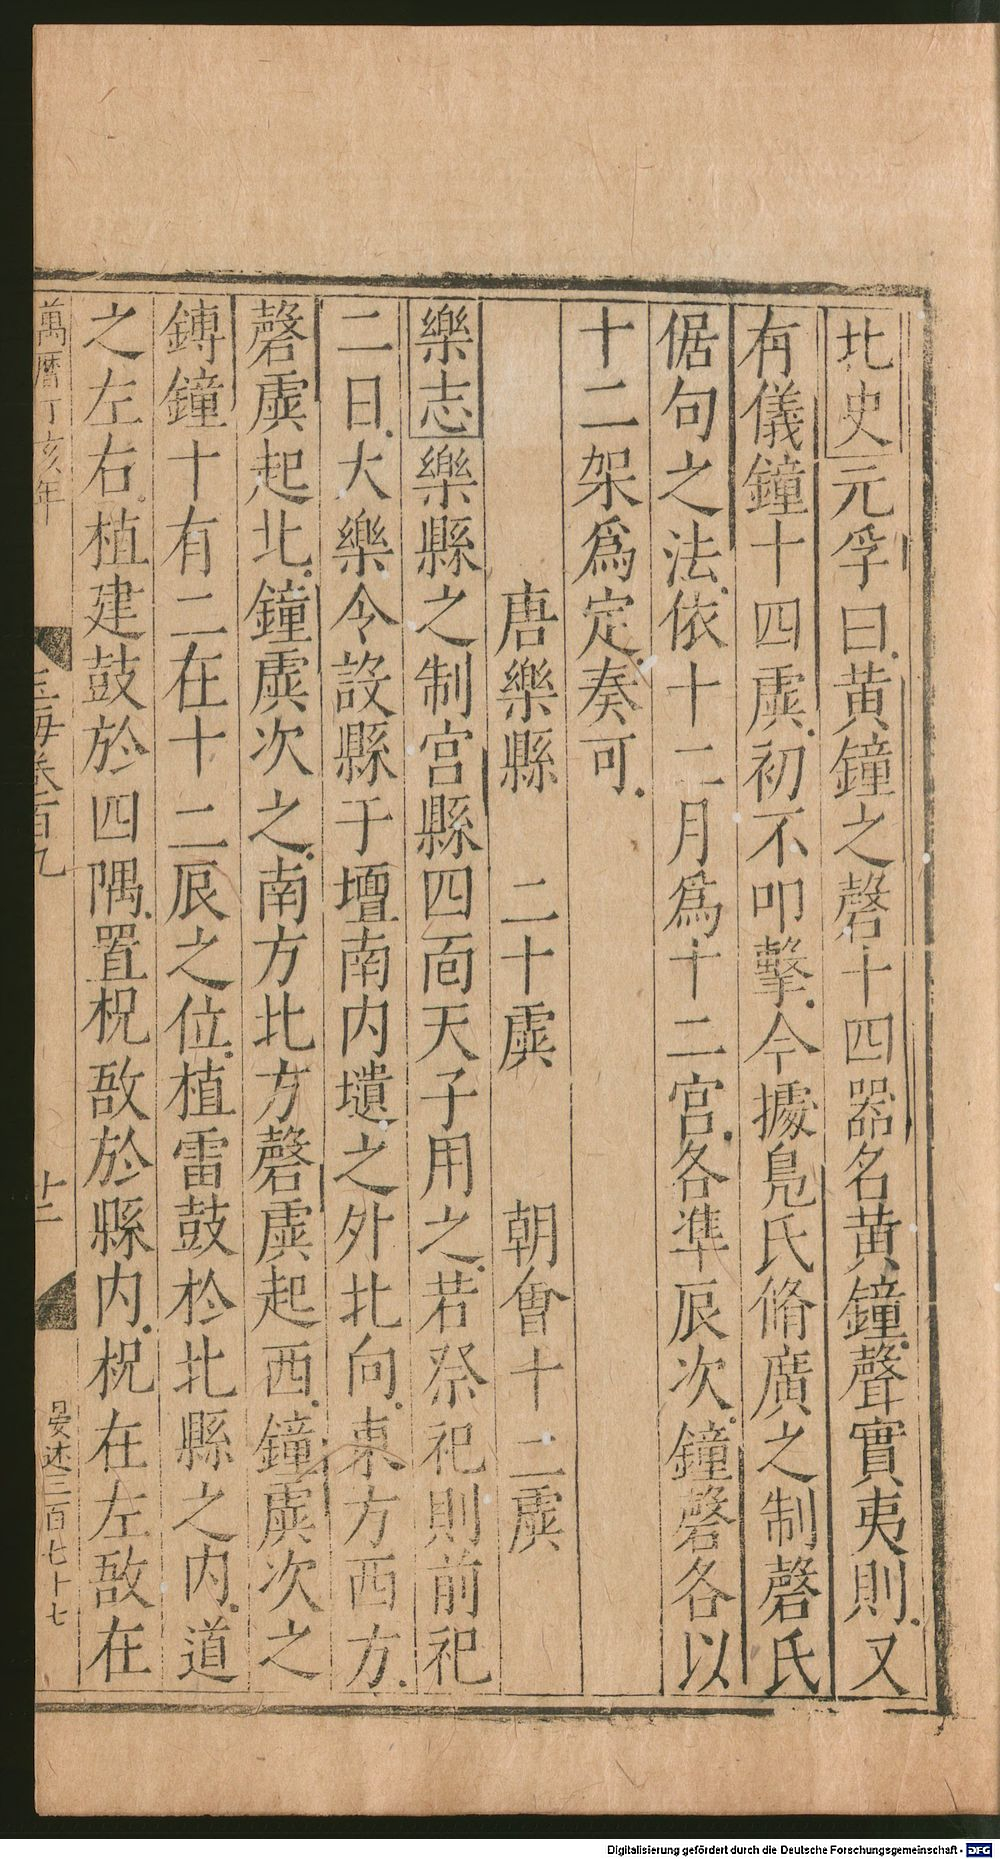 北史元孚曰黃鐘之磬十四器名黃鐘聲實夷則又
有儀鐘十四虡初不叩擊今據鳧氏脩廣之制磬氏
倨句之法依十二月爲十二宮各準辰次鐘磬各以
十二架爲定奏可
唐樂縣　二十虡　朝會十二虡
樂志樂縣之制宮縣四面天子用之若祭祀則前祀
二日大樂令設縣于壇南内壝之外北向東方西方
磬虡起北鐘虡次之南方北方磬虡起西鐘虡次之
鎛鐘十有二在十二辰之位植雷鼓於北縣之内道
之左右植建鼓於四隅置柷敔於縣内柷在左敔在
萬曆丁亥年
玉海卷百九
廿二
晏述三百七十七
Digitalisierung gefördert durch die Deutsche Forschungsgemeinschaft - DFG